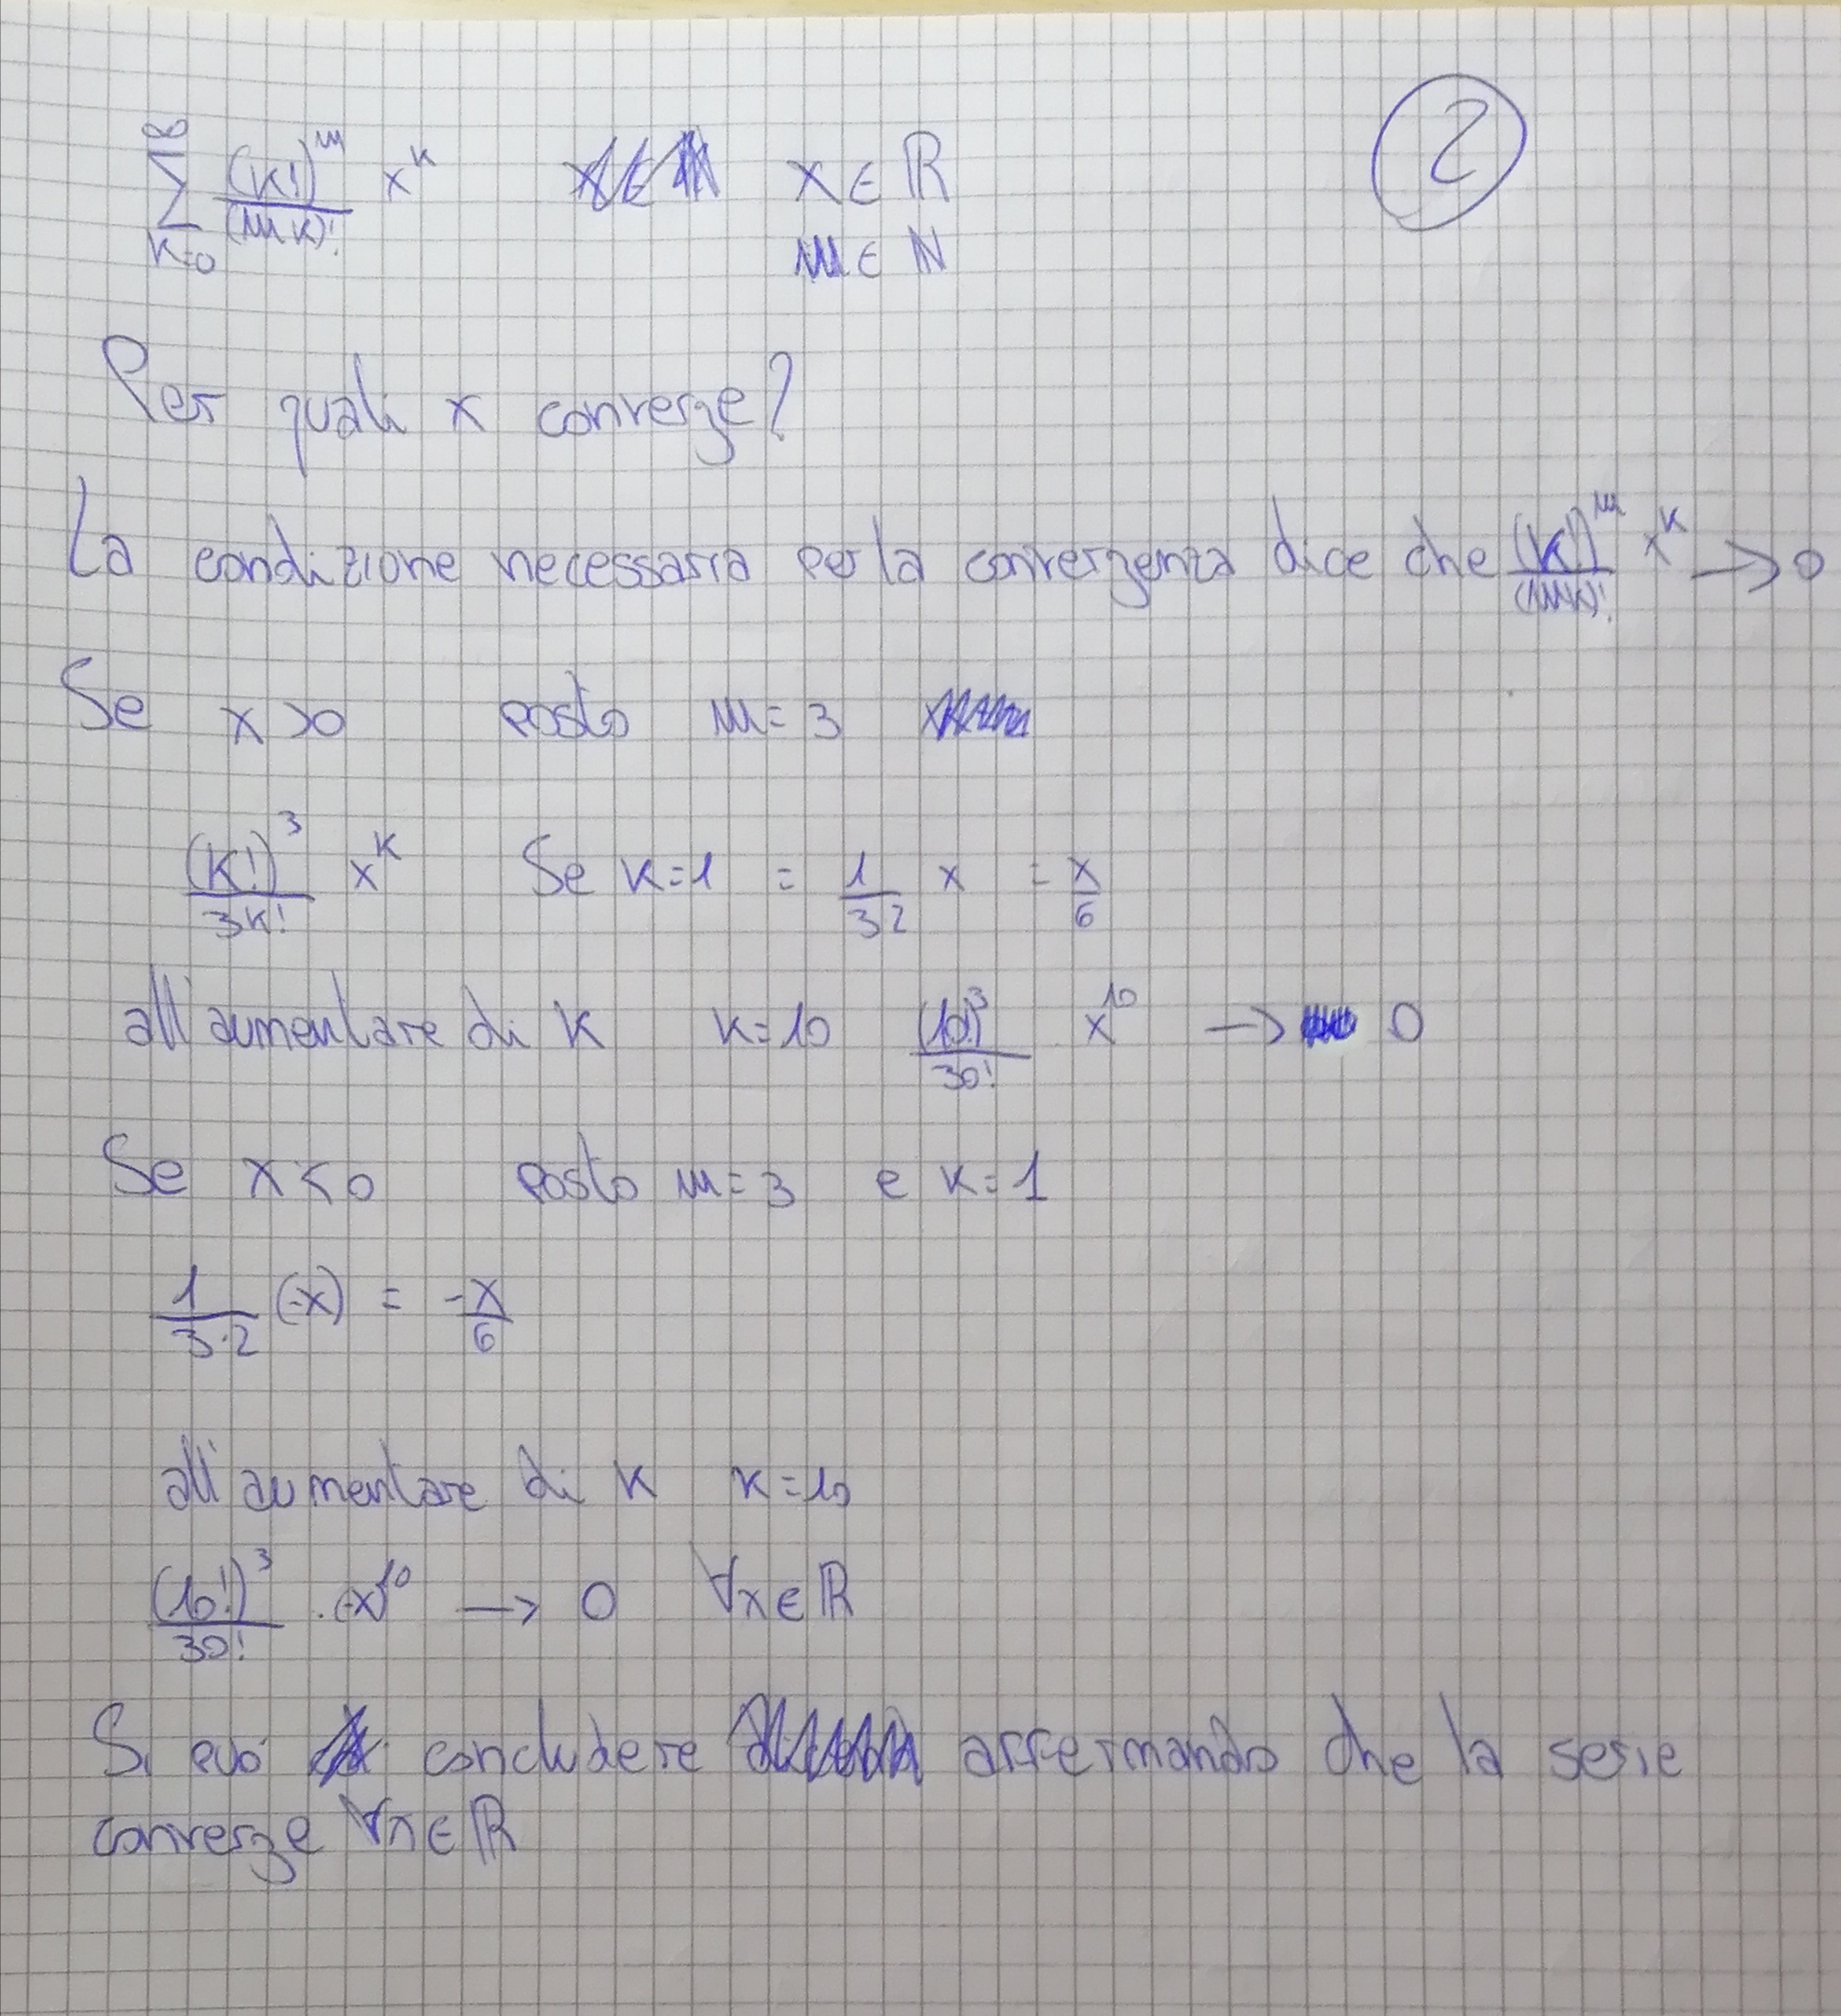 2
∑_{k=0}^{∞} (k!)^m / (mk)! x^k    x ∈ ℝ
m ∈ ℕ
Per quali x converge?
La condizione necessaria per la convergenza dice che (k!)^m / (mk)! x^k → 0
Se x > 0   posto m = 3
(k!)^3 / 3k! x^k   Se k = 1 = 1 / 3 2 x = x / 6
all'aumentare di k   k = 10   (10!)^3 / 30! · x^10 → 0
Se x < 0   posto m = 3 e k = 1
1 / 3·2 (-x) = -x / 6
all'aumentare di k   k = 10
(10!)^3 / 30! · (-x)^10 → 0   ∀x ∈ ℝ
Si può concludere affermando che la serie
converge ∀x ∈ ℝ